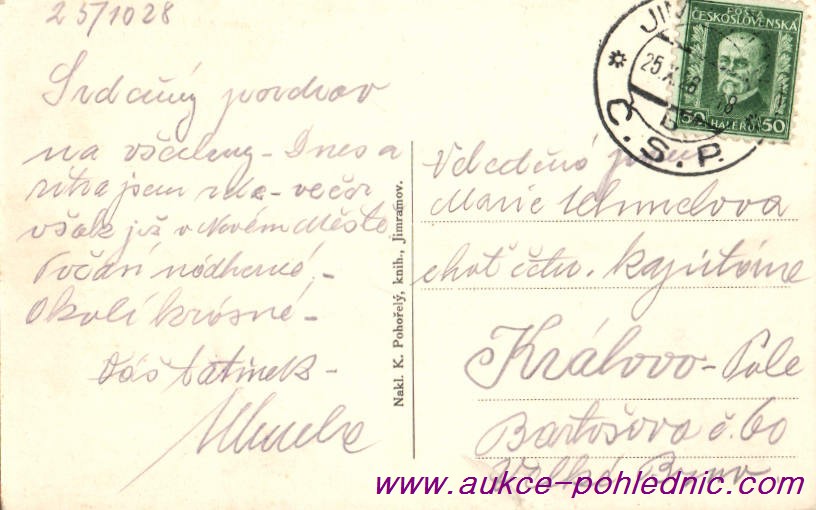 25/10 28
Srdečný pozdrav
na všechny - Dnes a
zítra jsem zde - večer
však již v Novém Městě
Počasí nádherné -
Okolí krásné -
Váš tatínek -
Nakl. K. Pohořelý, knih., Jimramov.
POŠTA
ČESKOSLOVENSKÁ
50 HALÉŘŮ 50
JIM
25.X.28 -18
Č.S.P.
Velectěná paní
Marie
choť četn. kapitána
Královo-Pole
Bartošova č. 60
Velké Brno
www.aukce-pohlednic.com